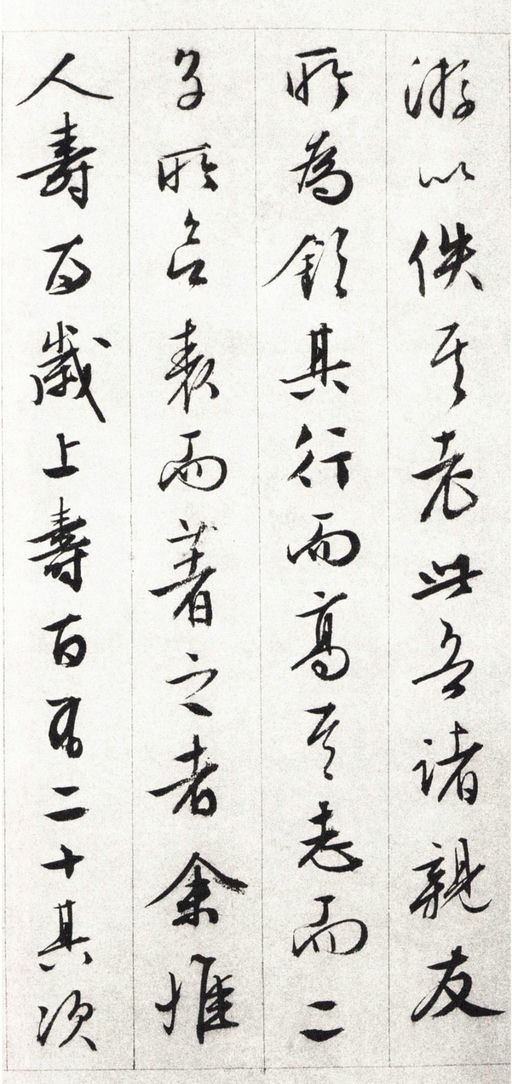 游以佚其老此諸親友
所為欽其行而高其志而二
子所表而著之者余惟
人壽百歲上壽百有二十其次